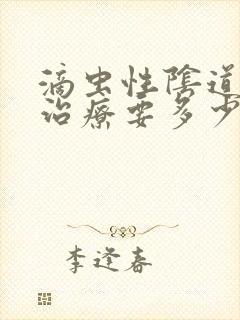 滴虫性陰道
治療要多少
李逢春